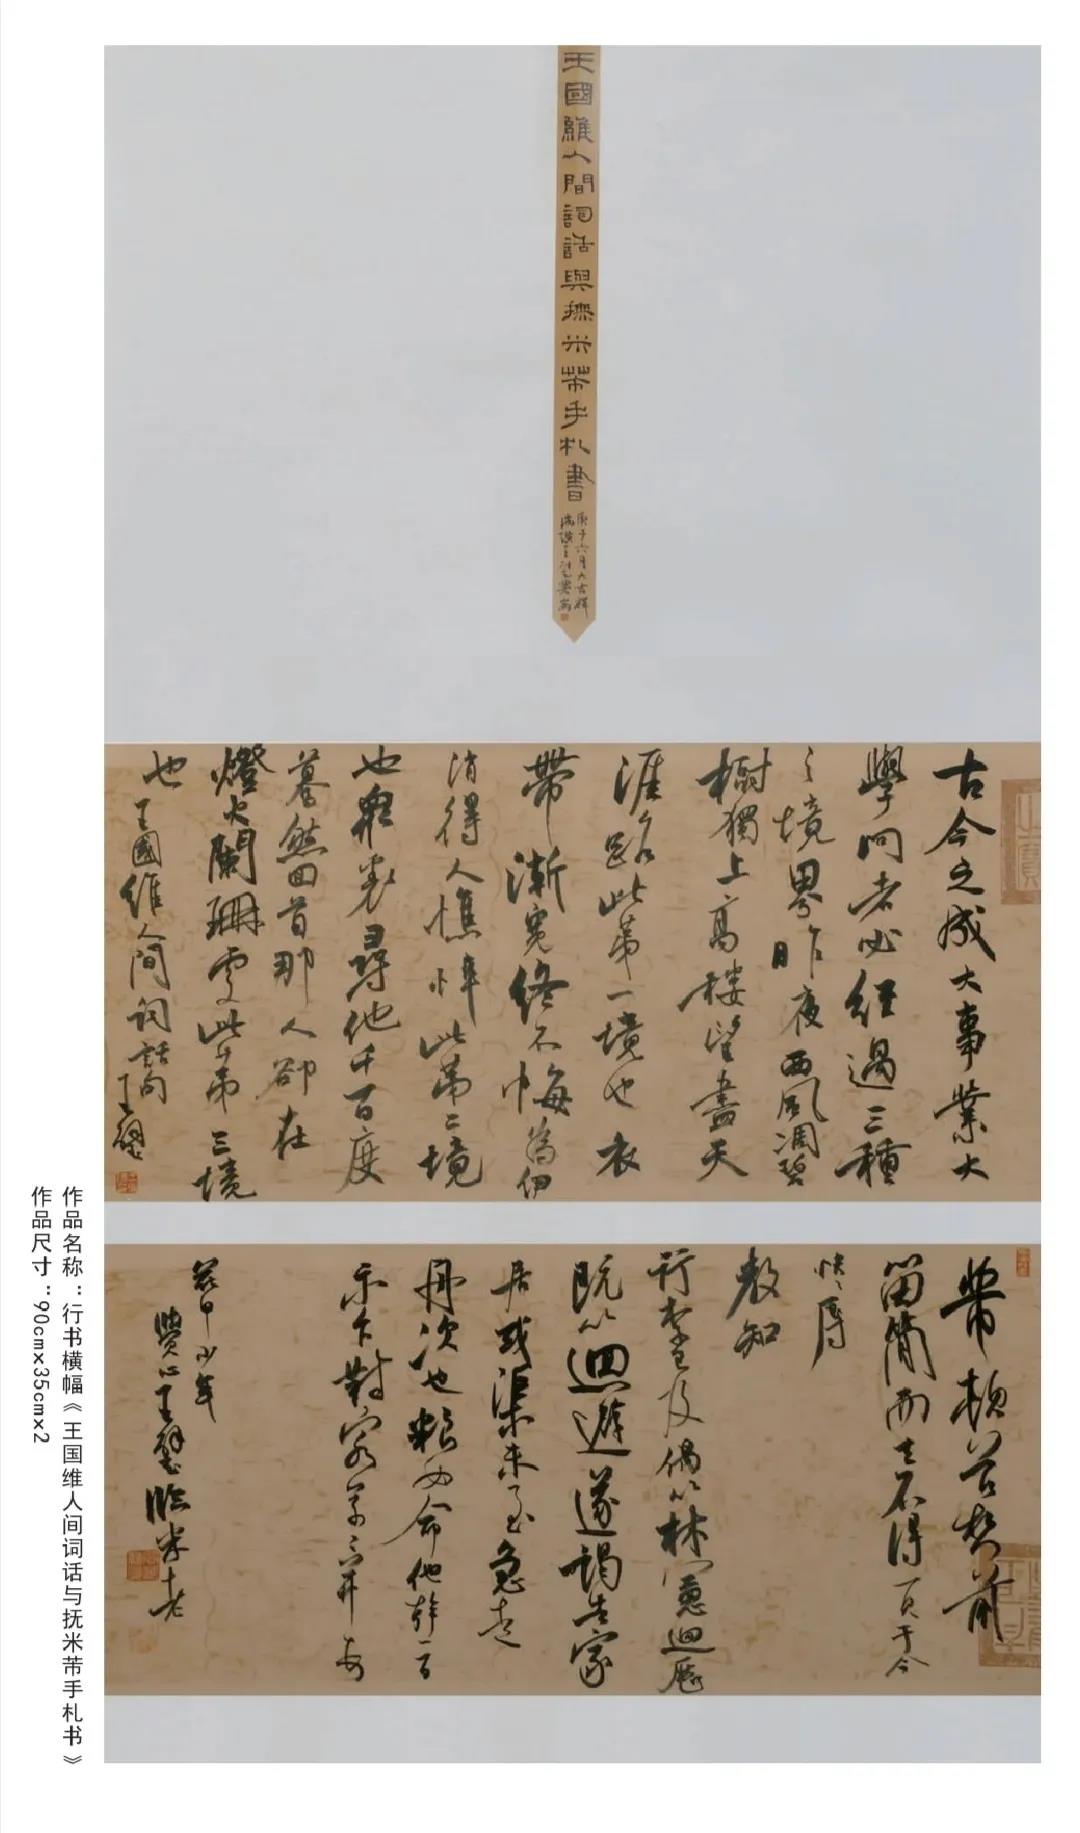 王國維人間詞話與撫米芾手札書
庚子六月大吉祥
古今之成大事業大
學問者必經過三種
之境界昨夜西風凋碧
樹獨上高樓望盡天
涯路此第一境也衣
帶漸寬終不悔為伊
消得人憔悴此第二境
也眾裏尋他千百度
驀然回首那人卻在
燈火闌珊處此第三境
也 王國維人間詞話句
芾頓首
留簡而去不得一見于今
怏怏辱
教知
行李已及偶以林憲迴歷
既以迴避遂謁告家
居或渠未至急走
舟次也賴
臨米
作品名称：行书横幅《王国维人间词话与抚米芾手札书》
作品尺寸：90cm×35cm×2